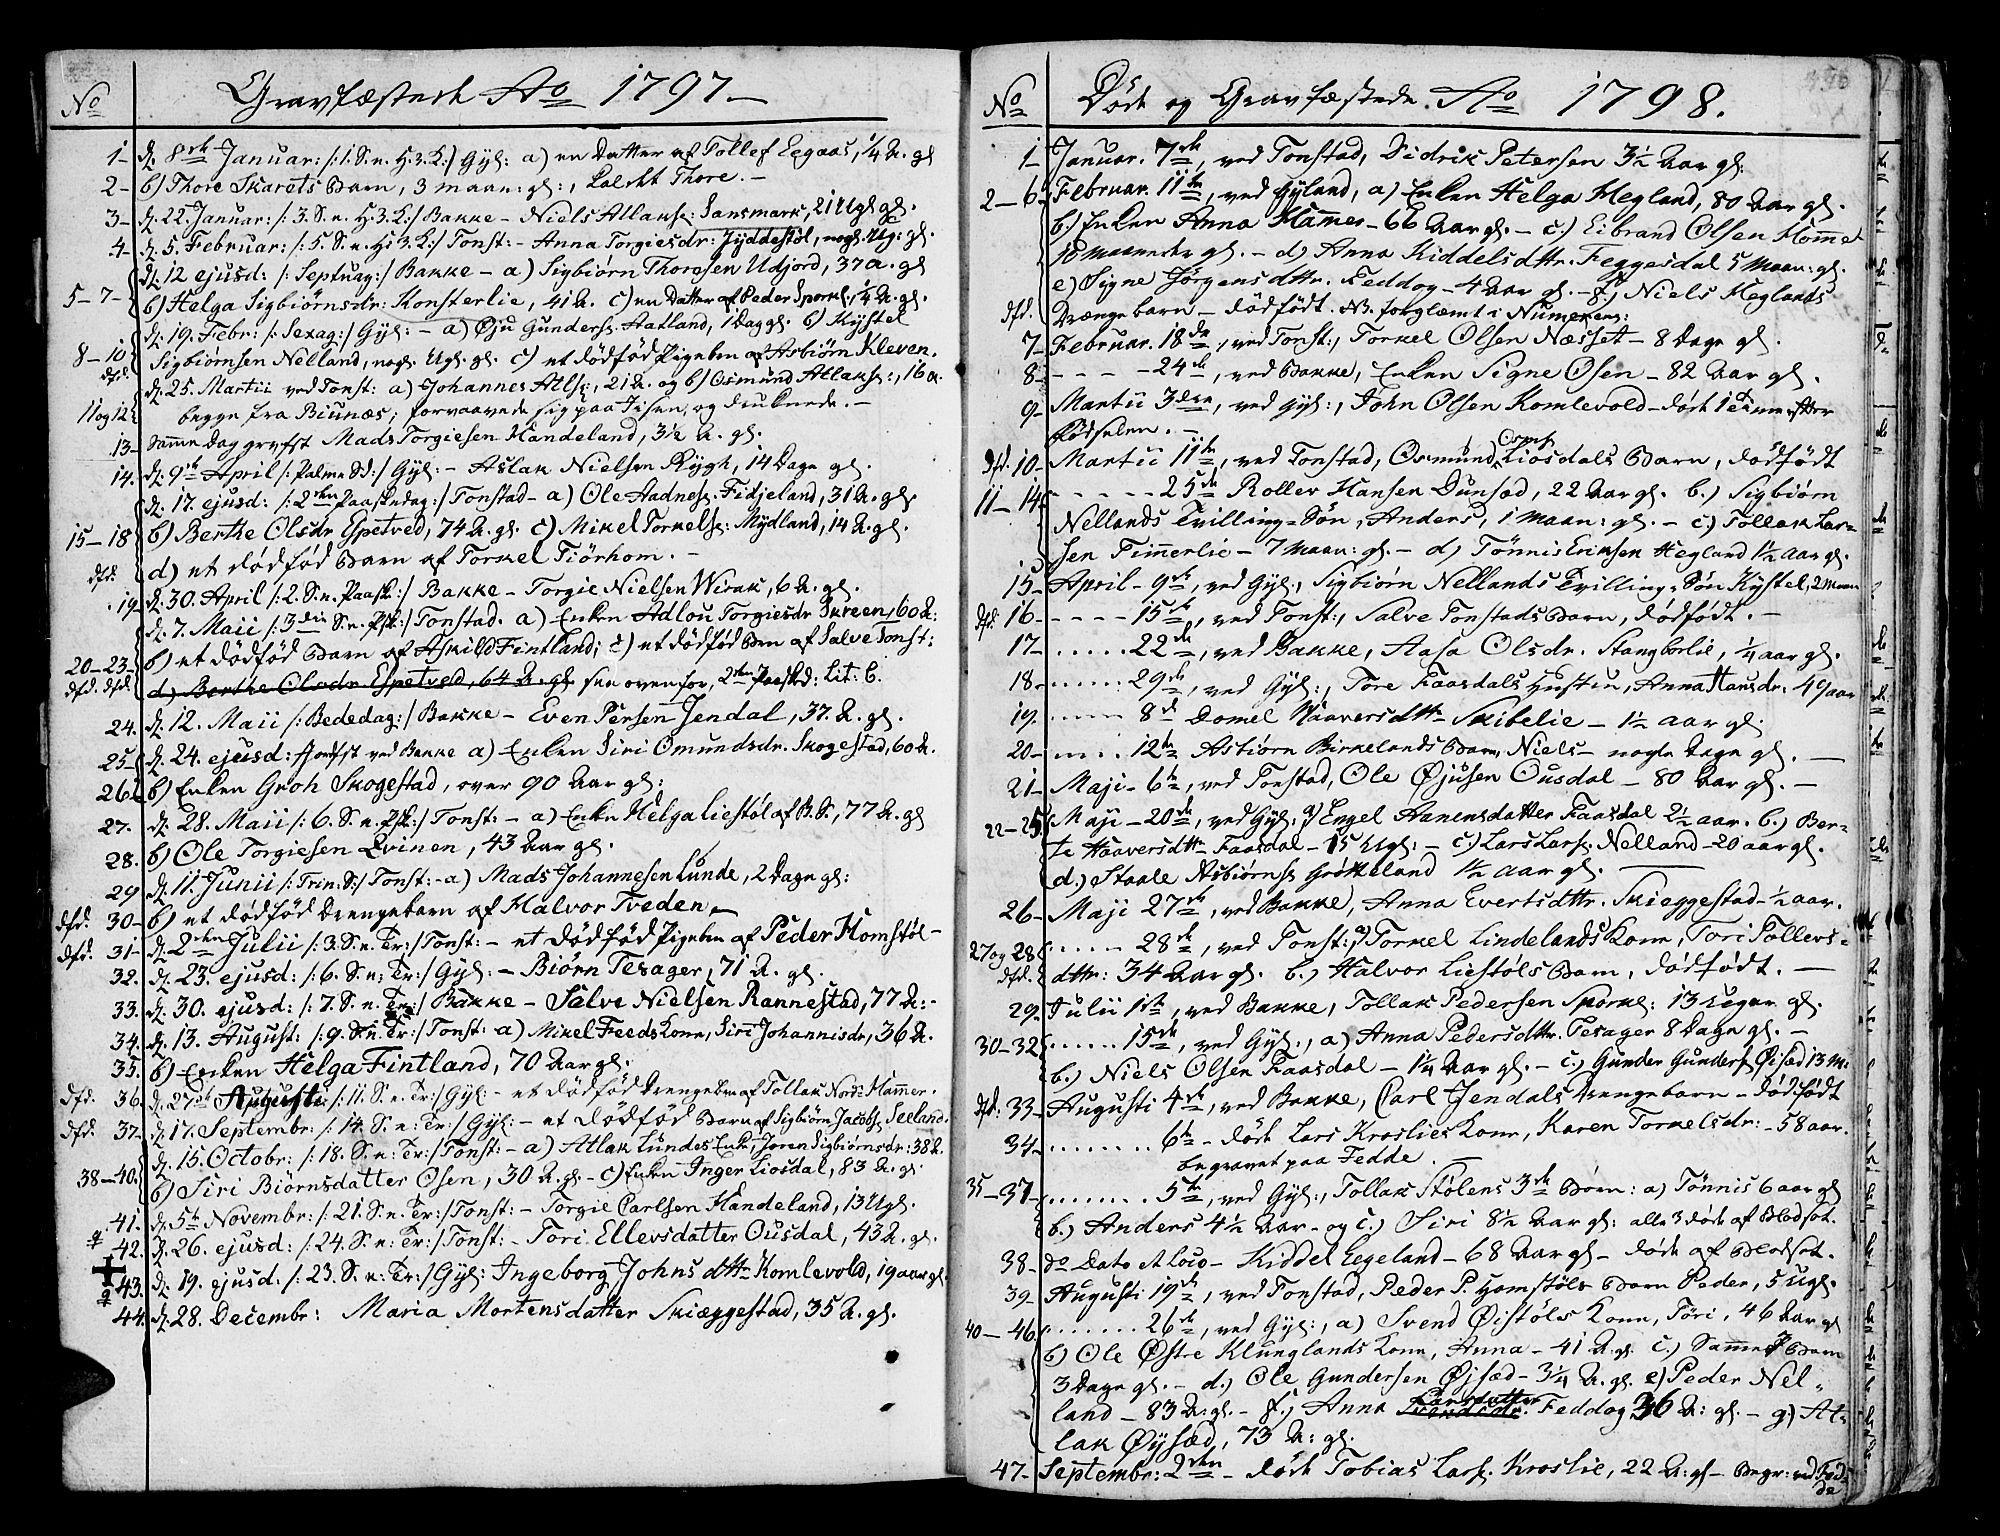 No
Gravfæstede Ao 1797 –
1– d. 8de Januar: /: 1. S. n. H. 3. K:/ Gyl: a) en Datter af Tollef Eegaas, 1/4 A. gl
2– b) Thore Skarets Barn, 3 maan: gl:, kaldet Thore. –
3– d. 22. Januar: /: 3. S. n. H. 3. K:/ Bakke – Niels Atlaks: Sansmark, 21 Ugl gl.
4– d. 5. Februar: /: 5. S. n. H. 3. K:/ Tonst: – Anna Torgiesdr: Jyddestøl, nogl. Ug: gl.
d. 12 ejusd: /: Septuag:/ Bakke – a) Sigbiørn Thoresen Udjord, 37 a. gl
5–7– b) Helga Sigbiørnsdr: Konsterlie, 41 A. c) en Datter af Peder Spork, 1/4 A. gl.
d. 19. Febr: /: Sexag:/ Gyl: – a) Øju Gunders. Aatland, 1 Dag gl. b) Kystel
8–10 Sigbiørnsen Nelland, nogl. Ugl. gl. c) et dødfød Pigebn af Asbiørn Kleven.
dfd. d. 25. Martii ved Tonst: a) Johannes Atls:, 21 A. og b) Osmund Atlaks:, 16 A.
11 og 12 begge fra Biunæs, forvaavede sig paa Jisen, og druknede. –
13– Samme Dag grvfst Mads Torgiesen Handeland, 3 1/2 A. gl.
14. d. 9de April /: Palme Sd:/ Gyl: – Aslak Nielsen Rygh, 14 Dage gl.
d. 17. ejusd: /: 2den Paaskedag:/ Tonstad – a) Ole Aadnes: Fidjeland, 31 A. gl.
15–18 b) Berthe Olsdr Espetved, 74 A. gl. c) Mikel Torkels: Mydland, 14 A. gl.
dfd. d) et dødfød Barn af Torkel Tiørhom. –
19 d. 30. April /: 2. S. n. Paask:/ Bakke – Torgie Nielsen Wirak, 6 A. gl.
d. 7. Maii /: 3die S. n. Psk:/ Tonstad. a) Enken Adlou Torgiesdr Sureen, 60 A.
20–23– b) et dødfød Barn af Askild Fintland; c) et dødfød Bn af Salve Tonst:
dfd. dfd. d) Berthe Olsdr Espetved, 64 A. gl see ovenfor, 2den Paaskd: Lit: b.
24. d. 12. Maii /: Bededag:/ Bakke – Even Persen Jendal, 37. A. gl.
25– d. 24. ejusd: ved Bakke a) Enken Siri Omundsdr. Skogestad, 60 A.
26. b) Enken Groh Skogestad, over 90 Aar gl:
27. d. 28. Maii /: 6. S. n. Psk:/ Tonst: – a) Enke Helga Liestøl af B. S., 77 A. gl
28. b) Ole Torgiesen Qvinen, 43 Aar gl.
29 d. 11. Junii /: Trin: S:/ Tonst: – a) Mads Johannesen Lunde, 2 Dage gl:
dfd. 30– b) et dødfød Drengebarn af Halvor Tveden –
dfd. 31– d. 2den Julii /: 3. S. n. Tr:/ Tonst: – et dødfød Pigebn af Peder Homstøl –
32. d. 23. ejusd: /: 6. S. n: Tr:/ Gyl: – Biørn Tesager, 71 A. gl.
33. d. 30. ejusd: /: 7. S. n. Tr:/ Bakke – Salve Nielsen Rannestad, 77 A: –
34. d. 13. August: /: 9. S. n. Tr:/ Tonst: a) Mikel Feeds Kone, Siri Johannisdr, 36 A.
35. b) Enken Helga Fintland, 70 Aar gl:
dfd. 36. d. 27de Augusti: /: 11. S. n. Tr:/ Gyl: – et dødfød Drengebn af Tollak Nord: Hammer.
dfd. 37– d. 17. Septembr: /: 14. S. n: Tr:/ Gyl: – et dødfød Barn af Sigbiørn Jacobs. Seeland.
d. 15. Octobr: /: 18. S. n: Tr:/ Tonst: – a) Atlak Lundes Enke, Joren Sigbiørnsdr: 38 A.
38–40. b) Siri Biørnsdatter Osen, 30 A. gl. – c) Enken Inger Liosdal, 83 A. gl.
41. d. 5te Novembr: /: 21. S. n. Tr:/ Tonst: – Torgie Carlsen Handeland, 13 Ugl.
42. d. 26. ejusd: /: 24. S. n: Tr:/ Tonst: – Tori Ellevsdatter Ousdal, 43 A. gl.
43. d. 19. ejusd. /: 23. S. n: Tr:/ Gyl: Ingeborg Johnsdttr Komlevold, 19 aar gl.
44. d. 28. Decembr: Maria Mortensdatter Skiæggestad, 35 A. gl.
No
Døde og Gravfæstede Ao 1798.
1– Januar. 7de, ved Tonstad, Didrik Petersen 3 1/2 Aar gl:
2–6 Februar. 11te, ved Gyland, a) Enken Helga Hegland, 80 Aar gl.
b.) Enken Anna Hames – 66 Aar gl. – c.) Eibrand Olsen Home
18 maaneder gl. – d) Anna Kiddelsdttr. Feggesdal 5 Maan: gl.
e) Signe Jørgensdttr. Feddog – 4 Aar gl. – f.) Niels Heglands
dfd. Drængebarn – dødfødt. NB. forglemt i Numerens:
7– Februar. 18de, ved Tonst:, Torkel Olsen Næsset – 8 Dage gl.
8– – – – – 24de, ved Bakke, Enken Signe Osen – 82 Aar gl.
9– Martii 3die, ved Gyl:, John Olsen Komlevold – død 1 Time efter
fødselen. –
dfd. 10– Martii 11te, ved Tonstad, Osmund Osms. Liosdals Barn, dødfødt
11–14 – – – – – 25de Rollev Hansen Dunsæd, 22 Aar gl. b.) Sigbiørn
Nellands Tvilling-Søn, Anders, 1 Maan: gl. – c.) Tollak Lar-
sen Fimerlie – 7 Maan: gl. – d) Tønnis Eriksen Hegland 1 1/2 aar gl.
15– April – 9de, ved Gyl:, Sigbiørn Nellands Tvilling-Søn Kystel, 2 Maan
dfd. 16– – – – – 15de, ved Tonst:, Salve Tonstads Barn, dødfødt. –
17– ..... 22de, ved Bakke, Aasa Olsdr. Stangborlie, 1/4 aar gl.
18– ..... 29de, ved Gyl:, Tore Faasdals Hustru, Anna Hansdr. 49 aar
19. ..... 8de Domel Haaversdttr Skibelie – 1 1/2 aar gl.
20– ..... 12te Asbiørn Birkelands Barn, Niels – nogle Dage gl. –
21– Maji – 6te, ved Tonstad, Ole Øjusen Ousdal – 80 Aar gl. –
22–25 Maji – 20de, ved Gyl: a) Engel Hanensdatter Faasdal 2 1/2 aar. b.) Ber-
te Haaversdttr Faasdal – 15 Ugl: – c.) Lars Lars. Nelland – 20 aar gl.
d.) Staale Asbiørns Grøtteland 1 1/2 aar gl.
26– Maji 27de, ved Bakke, Anna Evertsdttr. Skieggestad – 1/2 aar.
27 og 28 ..... 28de, ved Tonst: a) Torkel Lindelands Kone, Tori Tollevs-
dfd. dttr: 34 Aar gl. b.) Halvor Liestøls Barn, dødfødt. –
29. Julii 1ste, ved Bakke, Tollak Pedersen Spörke: 13 Uger gl.
30–32 ...... 15de, ved Gyl:, a) Anna Pedersdttr. Tesager 8 Dage gl. –
b.) Niels Olsen Faasdal – 1 1/4 Aar gl. – c.) Gunder Gunders Øisæd 13 M:
dfd: 33– Augusti 4de, ved Bakke, Carl Jendals Drengebarn – dødfødt
34– ........ 6te – døde Lars Kroslies Kone, Karen Torkelsdr: – 58 aar.
begravet paa Fedde. –
35–37– ........ 5te, ved Gyl:, Tollak Stølens 3de Børn: a) Tønnis 6 aar gl
b.) Anders 4 1/2 Aar – og c.) Siri 8 1/2 Aar gl: alle 3 døde af Blodsot.
38– do Dato & Loco – Kiddel Eegeland – 68 Aar gl – døde af Blodsot.
39– Augusti 19de, ved Tonstad, Peder P. Homstøls Barn Peder, 5 Ugl.
40–46 ....... 26de, ved Gyl:, a) Svend Øistøls Kone, Tori, 46 Aar gl
b) Ole Østre Klunglands Kone, Anna – 41 A. gl. c.) Samme Barn
3 Dage gl. – d.) Ole Gundersen Øjsæd – 3 1/4 A. gl. e) Peder Nel-
land – 83 A: gl. – f.) Anna Svendsdr. Larsdatter Feddog 36 A: gl – g.) At-
lak Øysæd, 73 A: gl.
47– Septembr: 2den – døde Tobias Lars. Kroslie, 22 A: gl – Begr: ved Fed-
de